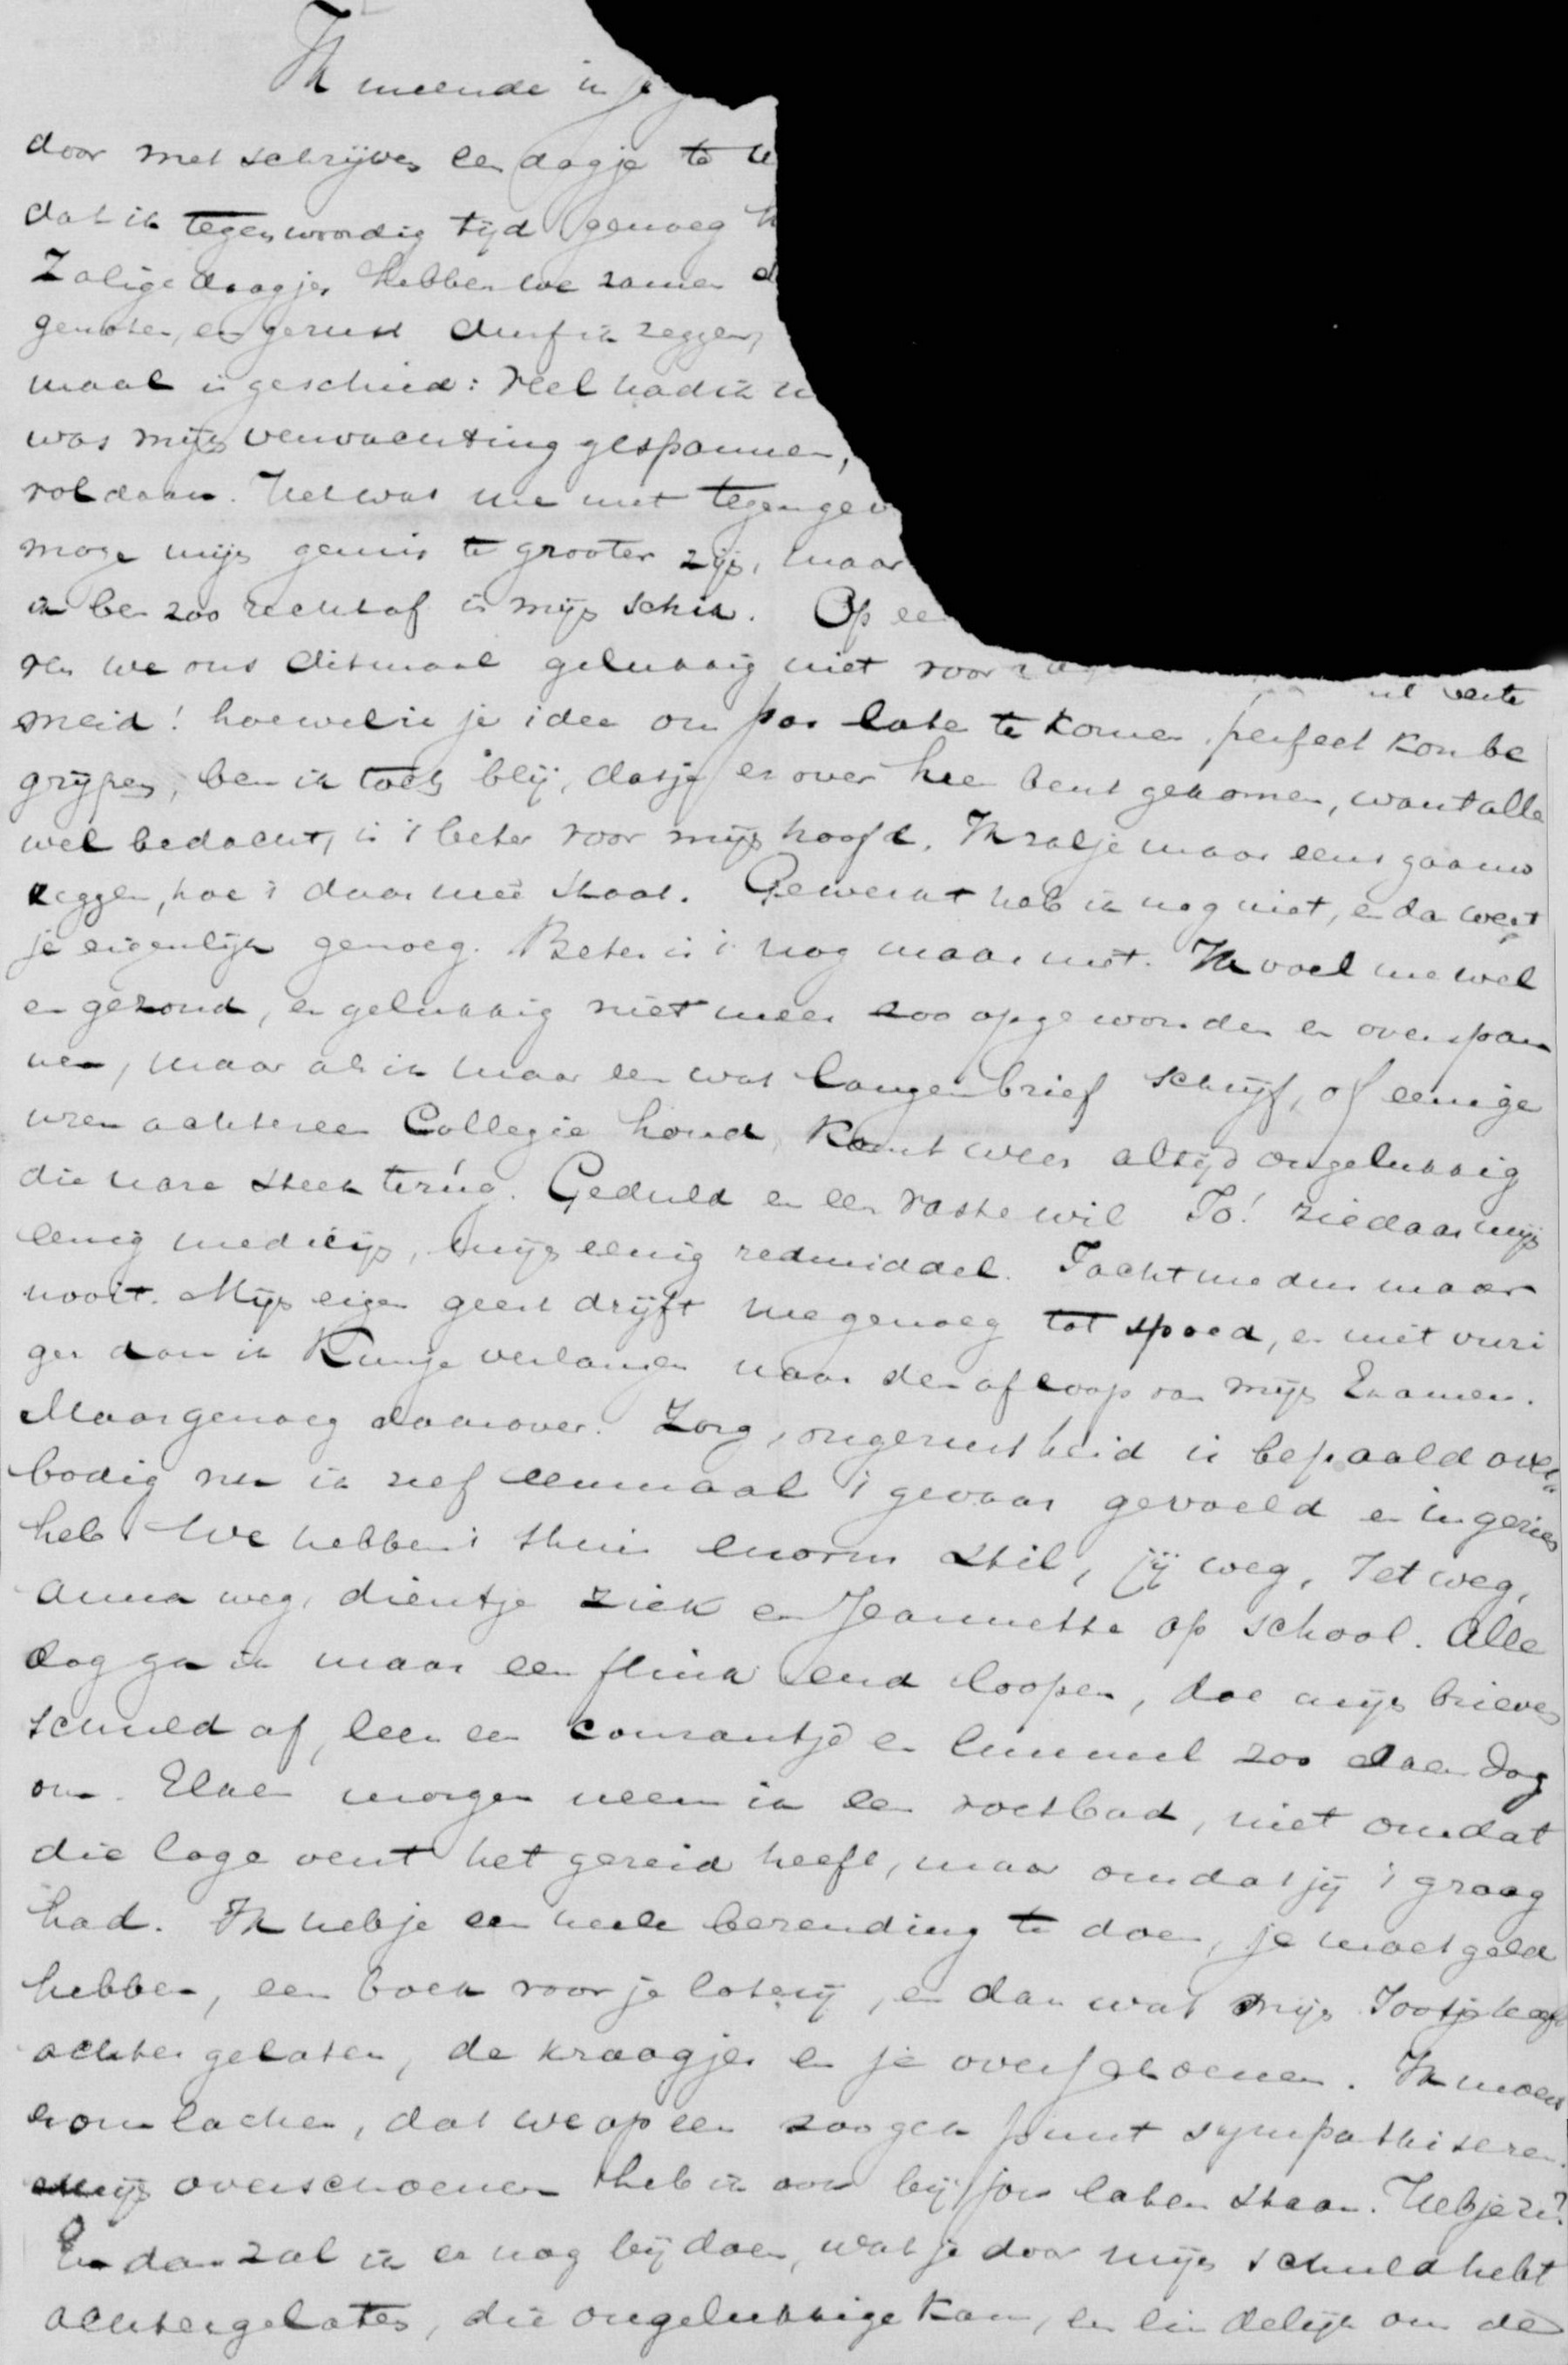 Ik meende in je
door met schrijven een dagje te
dat ik tegenwoordig tijd genoeg h
Zalige daagjes hebben we samen d
genoten, en gerust durf ik zeggen,
maal is geschied: Veel had ik
was mijn verwachting gespannen,
voldaan. Het was me niet tegengev
moge mijn gemis te grooter zijn, maar
ik ben zoo rechtaf in mijn schik. Op ee
ren we ons ditmaal gelukkig niet voor
meid! hoewel ik je idee om pas later te komen perfect kon be
grijpen, ben ik toch blij, dat je er over heen bent gekomen, want alle
wel bedacht, is 't beter voor mijn hoofd. Ik zal je maar eens gaauw
zeggen, hoe 't daar meê staat. Gewerkt heb ik nog niet, en dan weet
je eigenlijk genoeg. Beter is 't nog maar niet. Ik voel me wel
en gezond, en gelukkig niet meer zoo opgewonden en overspan
nen, maar als ik maar een wat langen brief schrijf, of eenige
uren achtereen Collegie houd, komt weer altijd ongelukkig
die nare steek terúg. Geduld en een vaste wil To! ziedaar mijn
eenig medicijn, mijn eenig redmiddel. Jacht me dus maar
nooit. Mijn eigen geest drijft me genoeg tot spoed, en niet vuri
ger dan ik kun je verlangen naar den afloop van mijn Examen.
Maar genoeg daarover. Zorg, ongerustheid is bepaald over
bodig nu ik zelf eenmaal 't gevaar gevoeld en ingezien
heb. We hebben 't thuis enorm stil, jij weg, Jet weg,
Anna weg, dientje ziek en Jeannette op school. Alle
dag ga ik maar een flink eind loopen, doe mijn brieven
schuld af, lees een courantje en lummel zoo den dag
om. Elken morgen neem ik een voetbad, niet omdat
die lage vent het gezeid heeft, maar omdat jij 't graag
had. Ik heb je een heele bezending te doen, je moet geld
hebben, een boek voor je loterij, en dan wat mijn Tootje heeft
achtergelaten, de kraagjes en je overschoenen. Ik moest
er om lachen, dat we op een zoo gek punt sympathiseren.
mijn overschoenen heb ik ook bij jou laten staan. Heb je ze?
En dan zal ik er nog bij doen, wat je door mijn schuld hebt
achtergelaten, die ongelukkige kam, en eindelijk om de